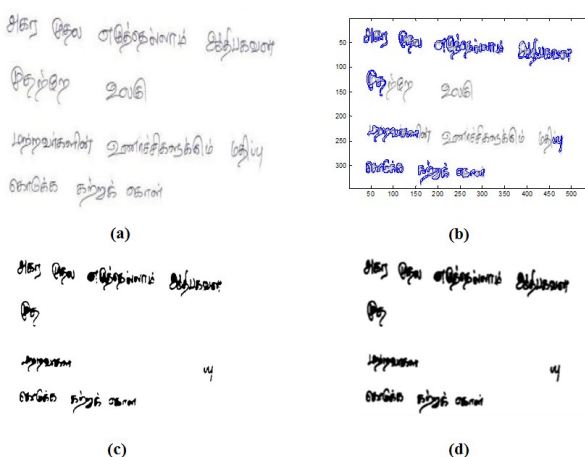 அகர முதல எழுத்தெல்லாம் ஆதிபகவன்
முதற்றே உலகு
மற்றவர்களின் உணர்ச்சிகளுக்கும் மதிப்பு
கொடுக்க கற்றுக் கொள்
(a)
50 அகர முதல எழுத்தெல்லாம் ஆதிபகவன்
100
150 முதற்றே உலகு
200
250 மற்றவர்களின் உணர்ச்சிகளுக்கும் மதிப்பு
300 கொடுக்க கற்றுக் கொள்
50 100 150 200 250 300 350 400 450 500
(b)
அகர முதல எழுத்தெல்லாம் ஆதிபகவன்
முத
மற்றவர்கள
கொடுக்க கற்றுக் கொள்
(c)
அகர முதல எழுத்தெல்லாம் ஆதிபகவன்
முத
மற்றவர்கள
கொடுக்க கற்றுக் கொள்
(d)